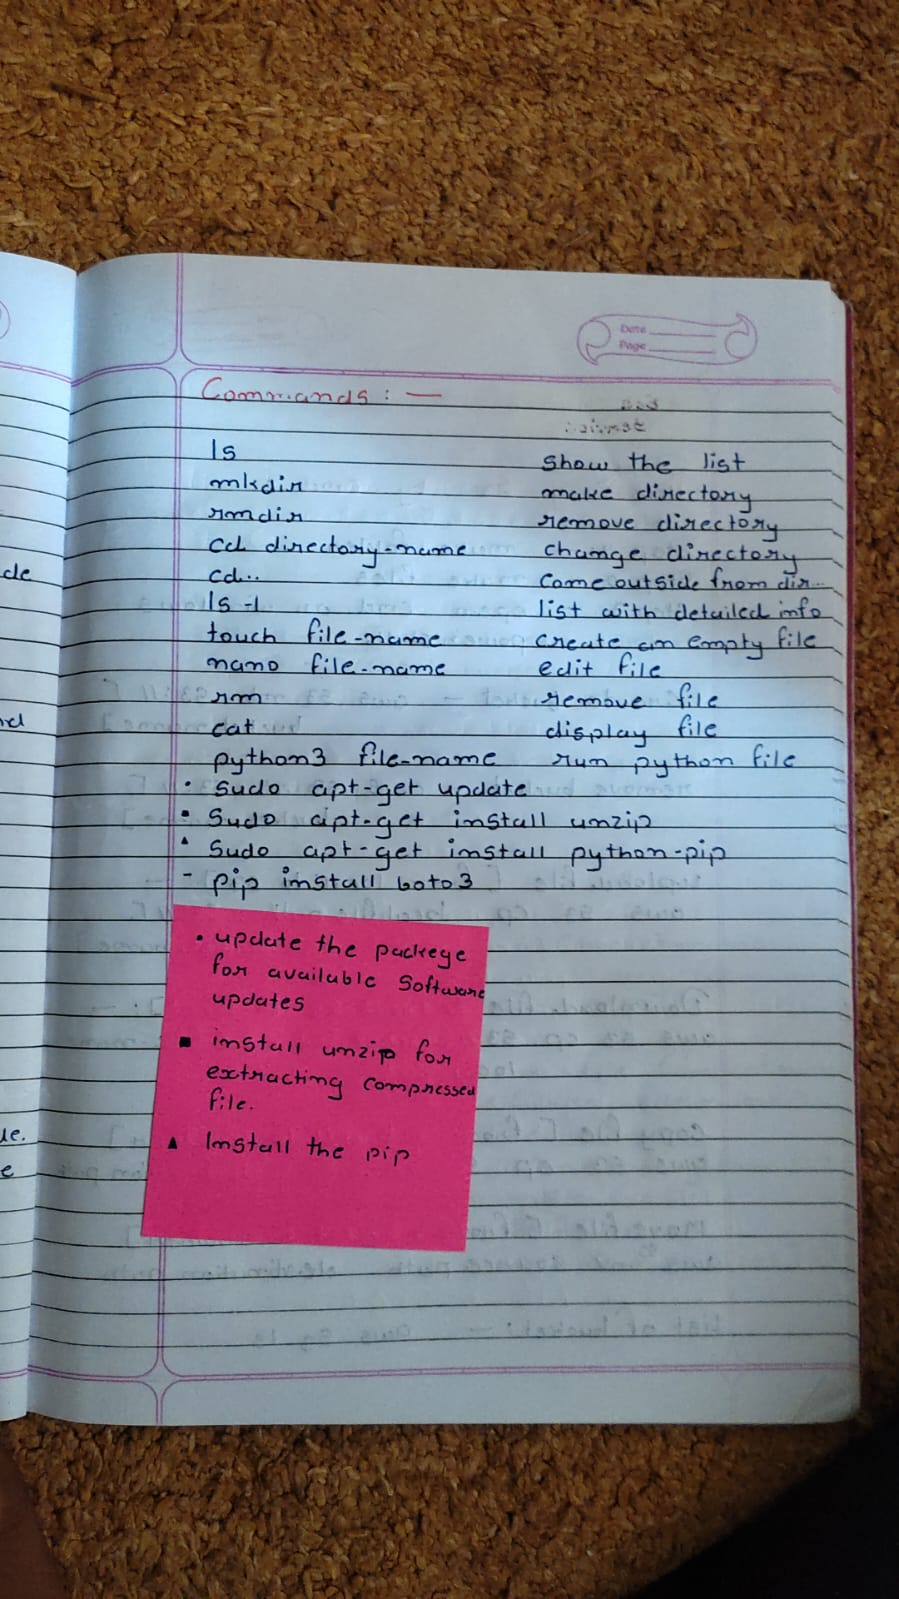 Date
Page
Commands : —
ls show the list
mkdir make directory
rmdir remove directory
cd directory-name change directory
cd.. Come outside from dir...
ls -l list with detailed info
touch file-name create an empty file
nano file-name edit file
rm remove file
cat display file
python3 file-name run python file
• Sudo apt-get update
▪ Sudo apt-get install unzip
▴ Sudo apt-get install python-pip
- pip install boto3
• update the packege
for available Software
updates
■ install unzip for
extracting compressed
file.
▲ Install the pip